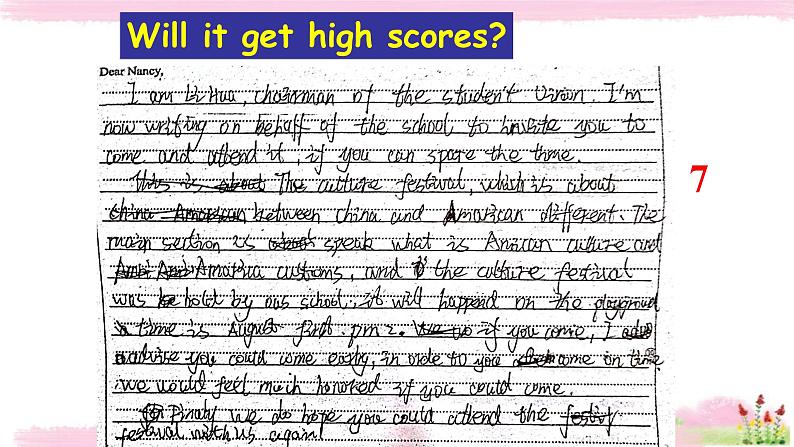 Will it get high scores?
Dear Nancy,
I am Li Hua, chairman of the student Union. I'm
now writing on behalf of the school to invite you to
come and attend it, if you can spare the time.
This is about The culture festival, which is about
china American between china and American different. The
main section is about speak what is Anican culture and
Amarica customs, and the culture festival
was hold by ous school, it will happend on the playground
time is August first. pm 2. if you come, I
advise you could come early, in orde to you come on time.
we would feel much honored if you could come.
Finaly we do hope you could attend the festiv
festival with us again!
7